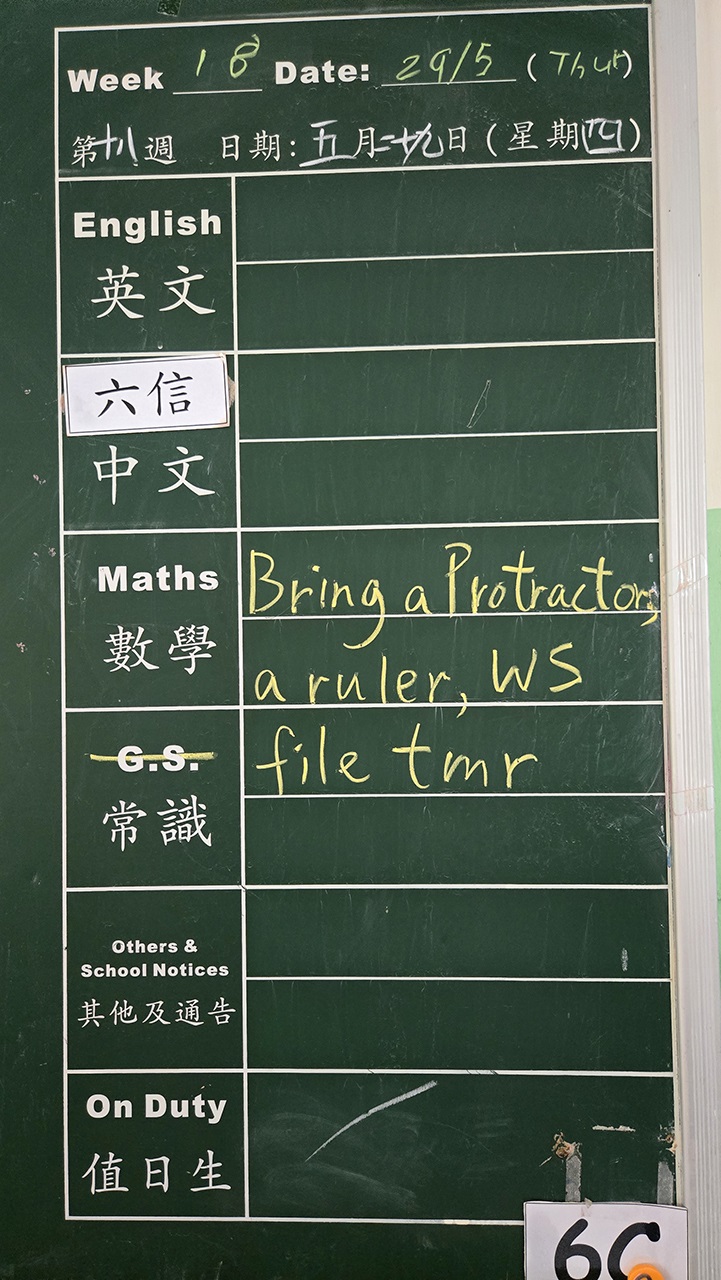 Week 18 Date: 29/5 (Thur)
第十八週 日期:五月二十九日(星期四)
English
英文
六信
中文
Maths
數學
Bring a Protractor,
a ruler, WS
file tmr
G.S.
常識
Others &
School Notices
其他及通告
On Duty
值日生
6C